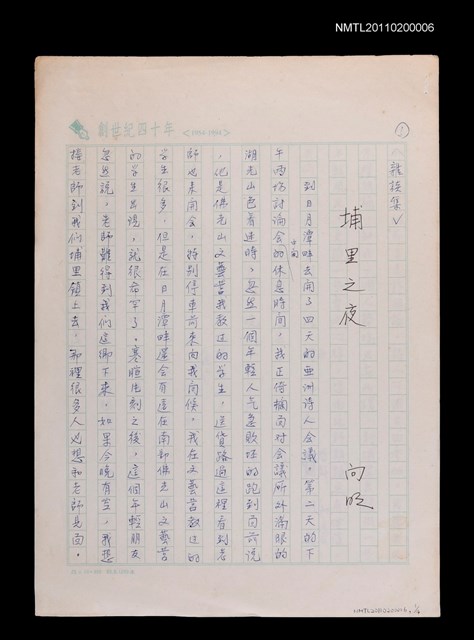 NMTL20110200006
創世紀四十年 <1954-1994>
①
︿雜換集﹀
埔里之夜
向明
到日月潭畔去開了四天的亞洲詩人會議。第二天的下
午兩場討論會的休息時間,中間我正倚欄面對會議所外滿眼的
湖光山色着迷時,忽然一個年輕人气急敗坏的跑到面前說
,他是佛光山文藝營我教过的學生,送貨路過這裡看到老
師也来開会,特别停車前来向我问候。我在文藝營教过的
学生很多,但是在日月潭畔還会有遠在南部佛光山文藝營
的学生出現,就很希罕了。寒暄片刻之後,這個年輕朋友
忽然說,老師難得到我们這鄉下来,如果今晚有空,我想
接老師到我們埔里鎮上去,那裡很多人也想和老師見面。
NMTL20110200006